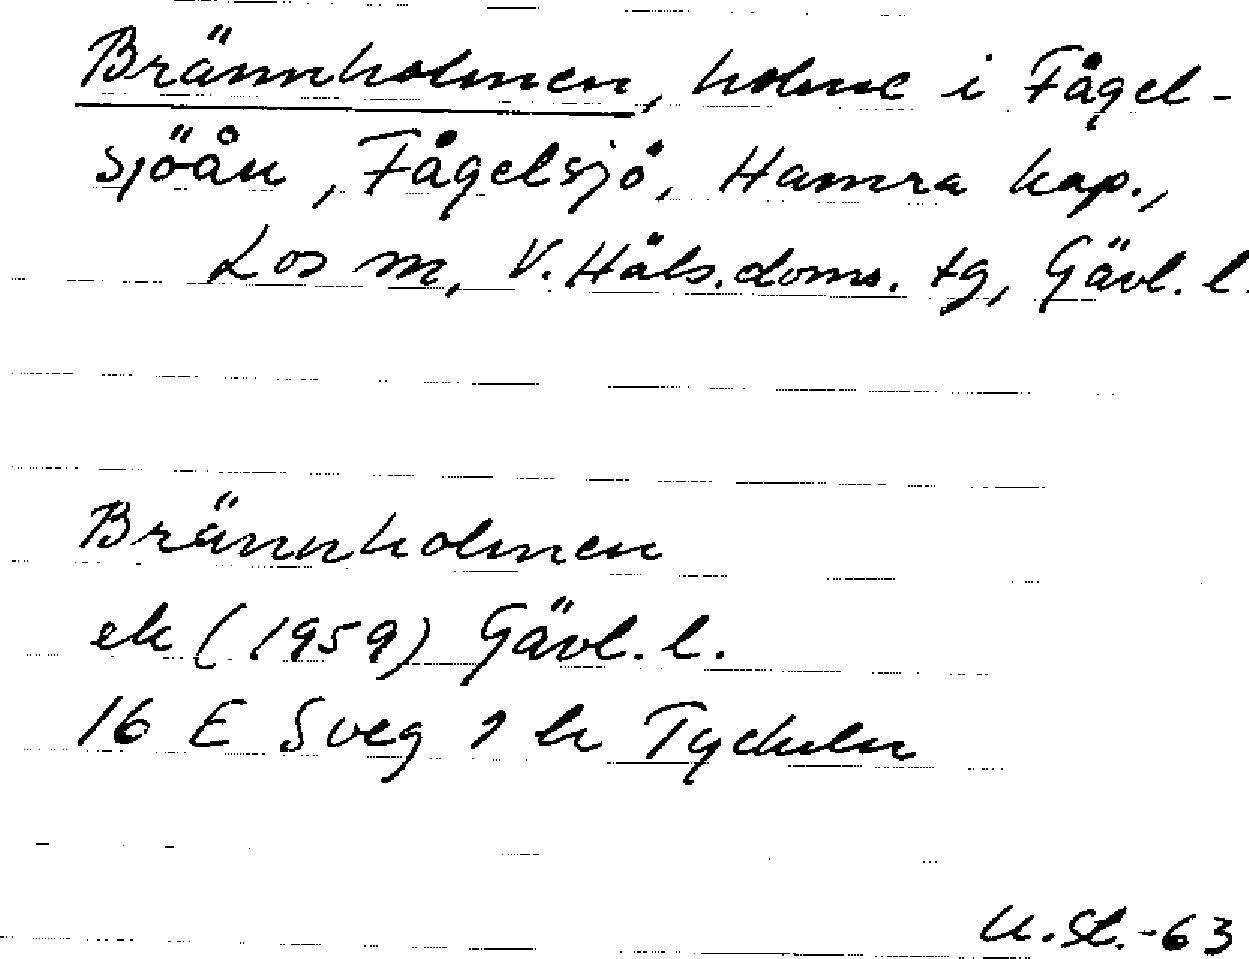 Brännholmen, holme i Fågel-
sjöån, Fågelsjö, Hamra kap.,
Los sn, V. Häls. doms. tg, Gävl. l.
Brännholmen
ek (1959) Gävl. l.
16 E Sveg 1 h Tyckeln
U. St. -63